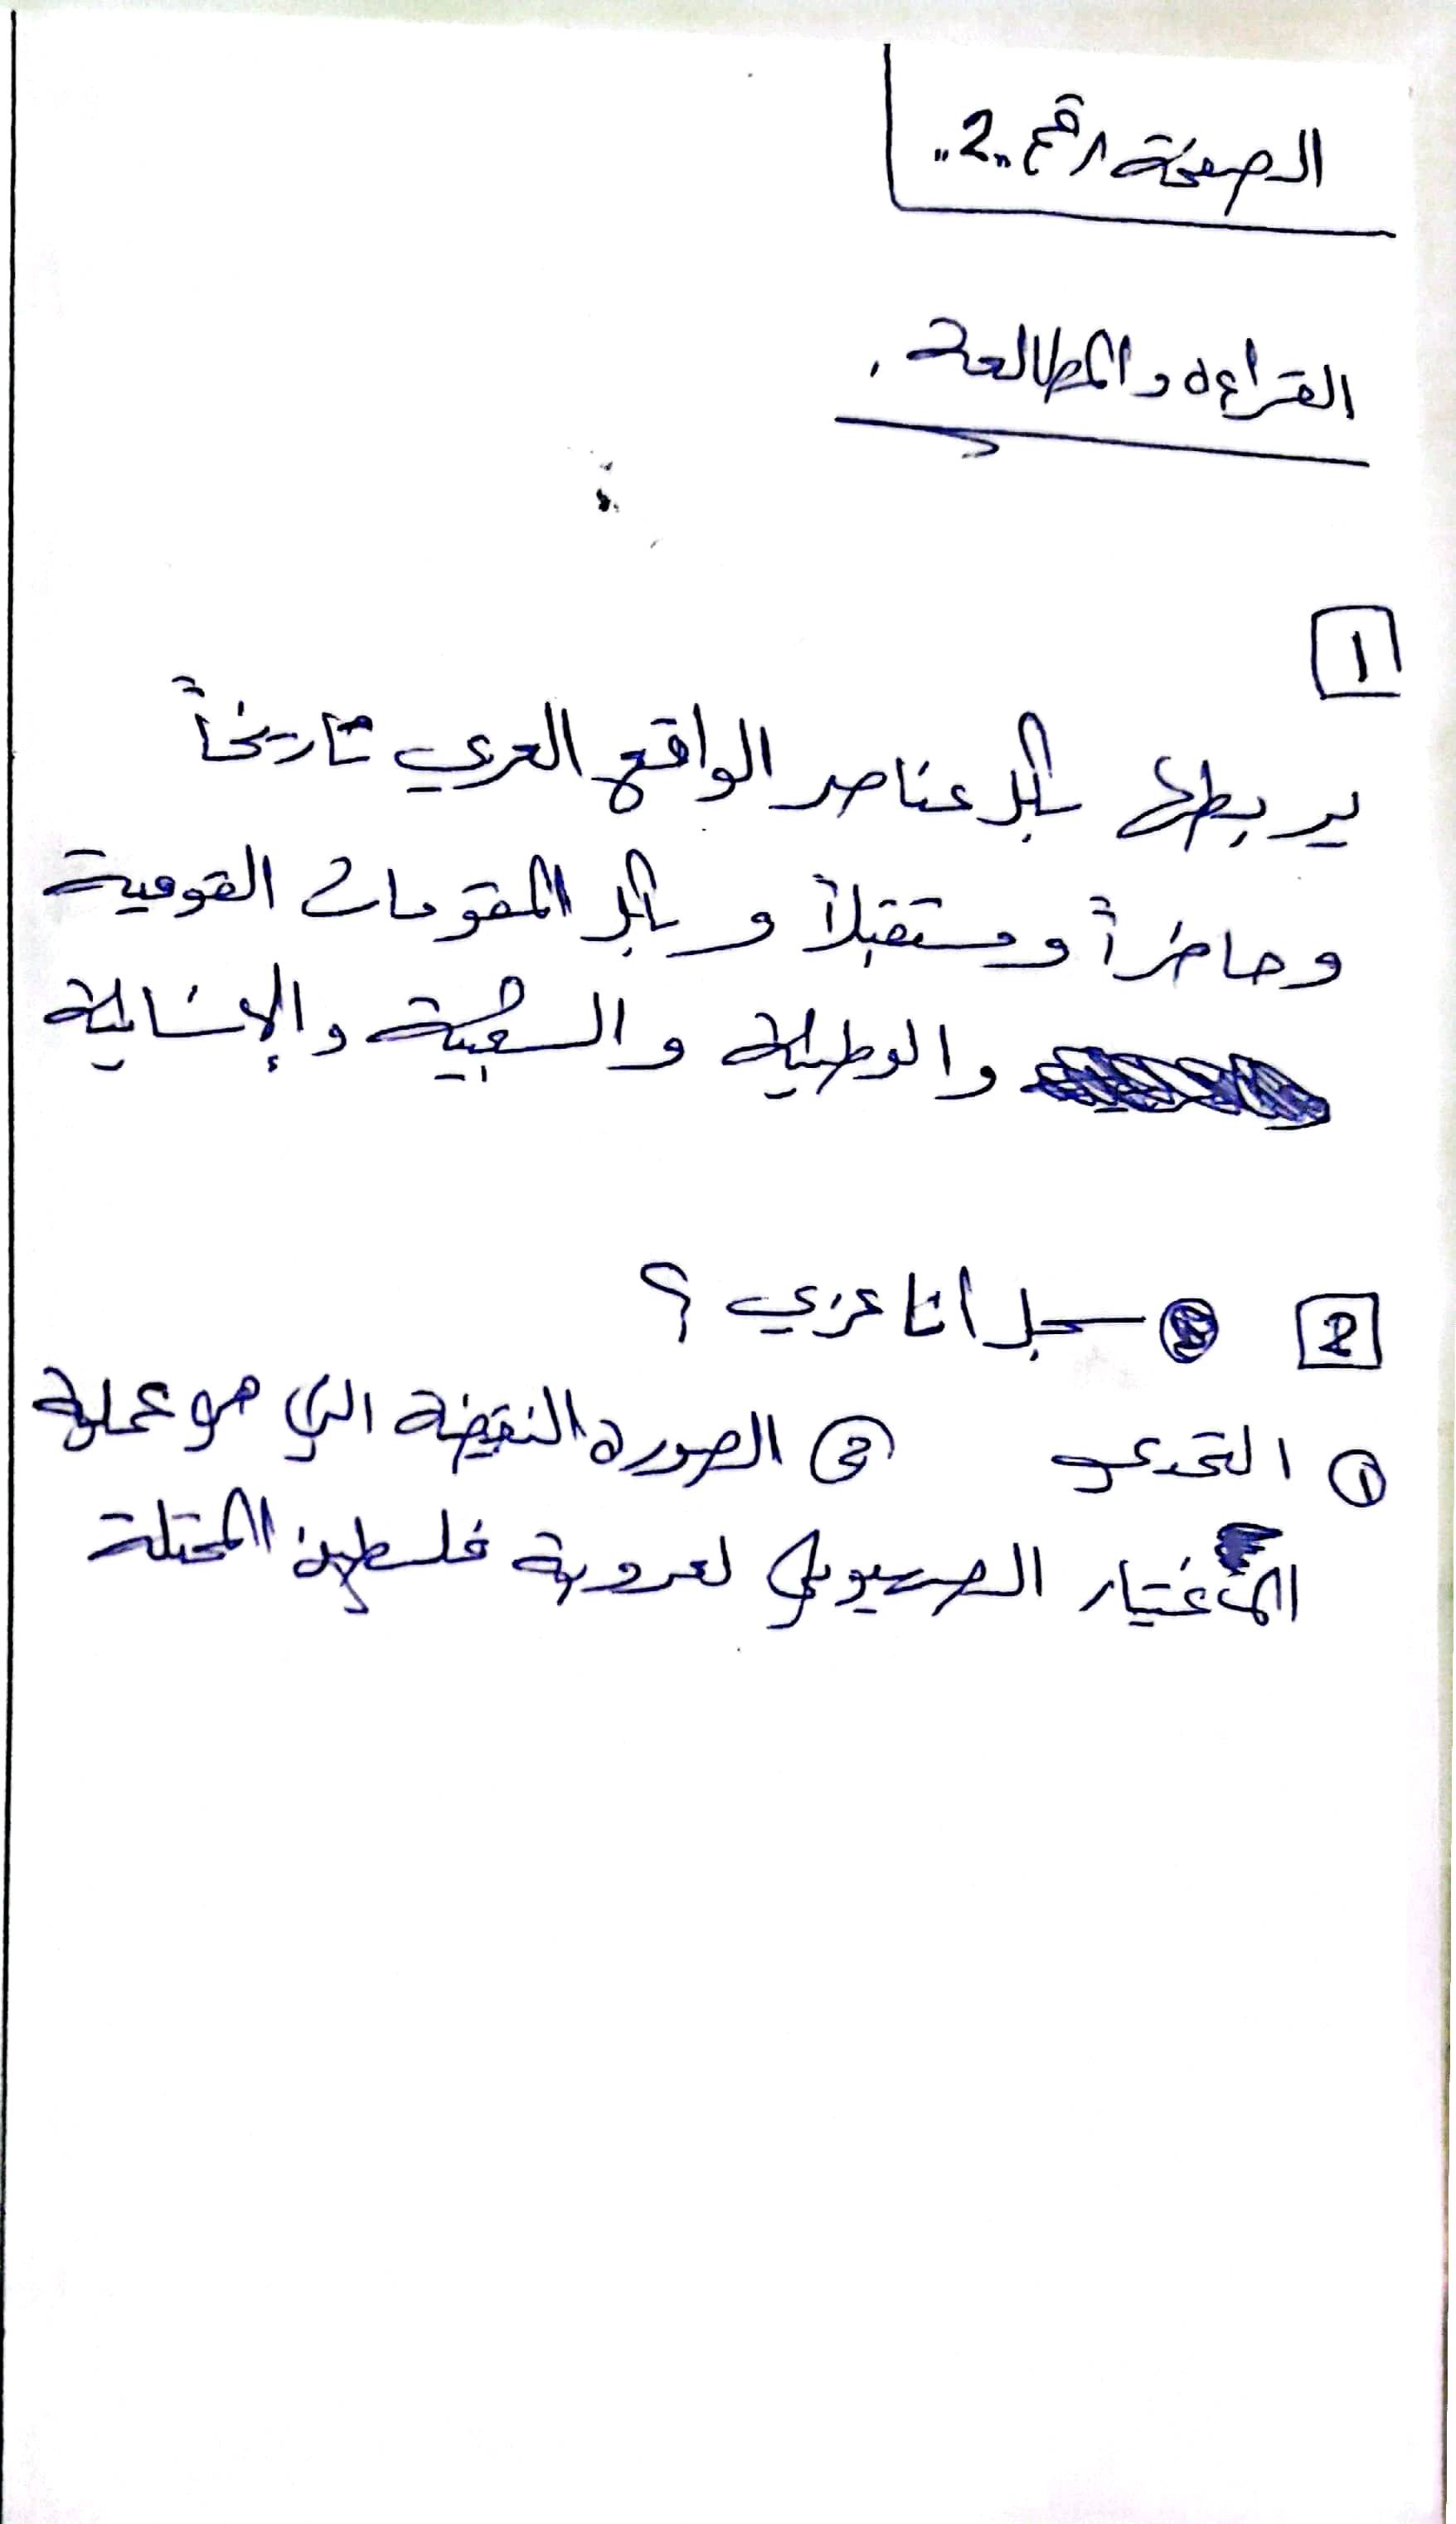 الصفحة رقم "2"
القراءة والمطالعة.
1
يربطها بكل عناصر الواقع العربي تاريخاً
وحاضراً ومستقبلاً وبكل المقومات القومية
والوطنية والشعبية والإنسانية
2 سجل أنا عربي ؟
① التحدي ② الصورة النقيضة التي هو عملية
الصهيوني لعروبة فلسطين المحتلة